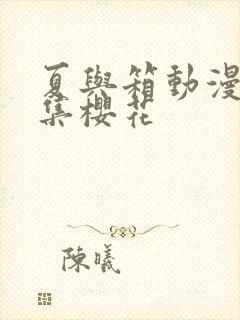 夏與箱動漫
集櫻花
陳曦